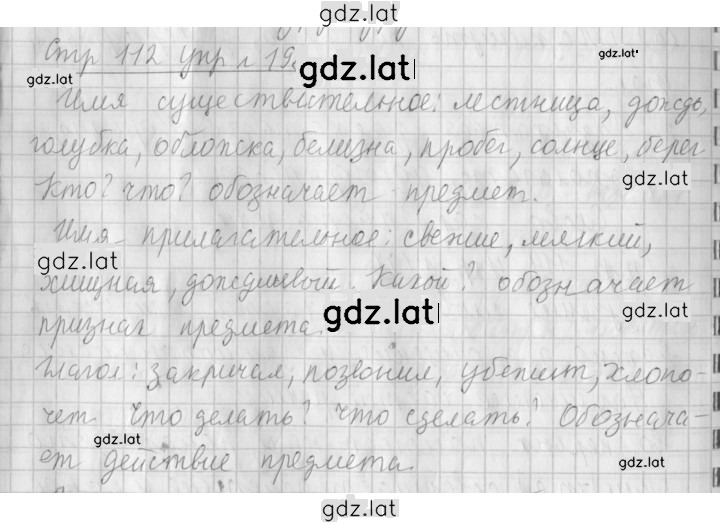 gdz.lat
Стр 112 упр 19.
gdz.lat
gdz.lat
gdz.lat
Имя существительное: лестница, дождь,
gdz.lat
голубка, обложка, белизна, пробег, солнце, берег
Кто? что? обозначает предмет.
gdz.lat
Имя прилагательное: свежие, мягкий,
gdz.lat
хищная, дождливой. Какой? обозначает
признак предмета.
gdz.lat
gdz.lat
Глагол: закричал, позвонил, хлопо-
чет Что делать? Что сделать? Обознача-
gdz.lat
ет действие предмета
gdz.lat
gdz.lat